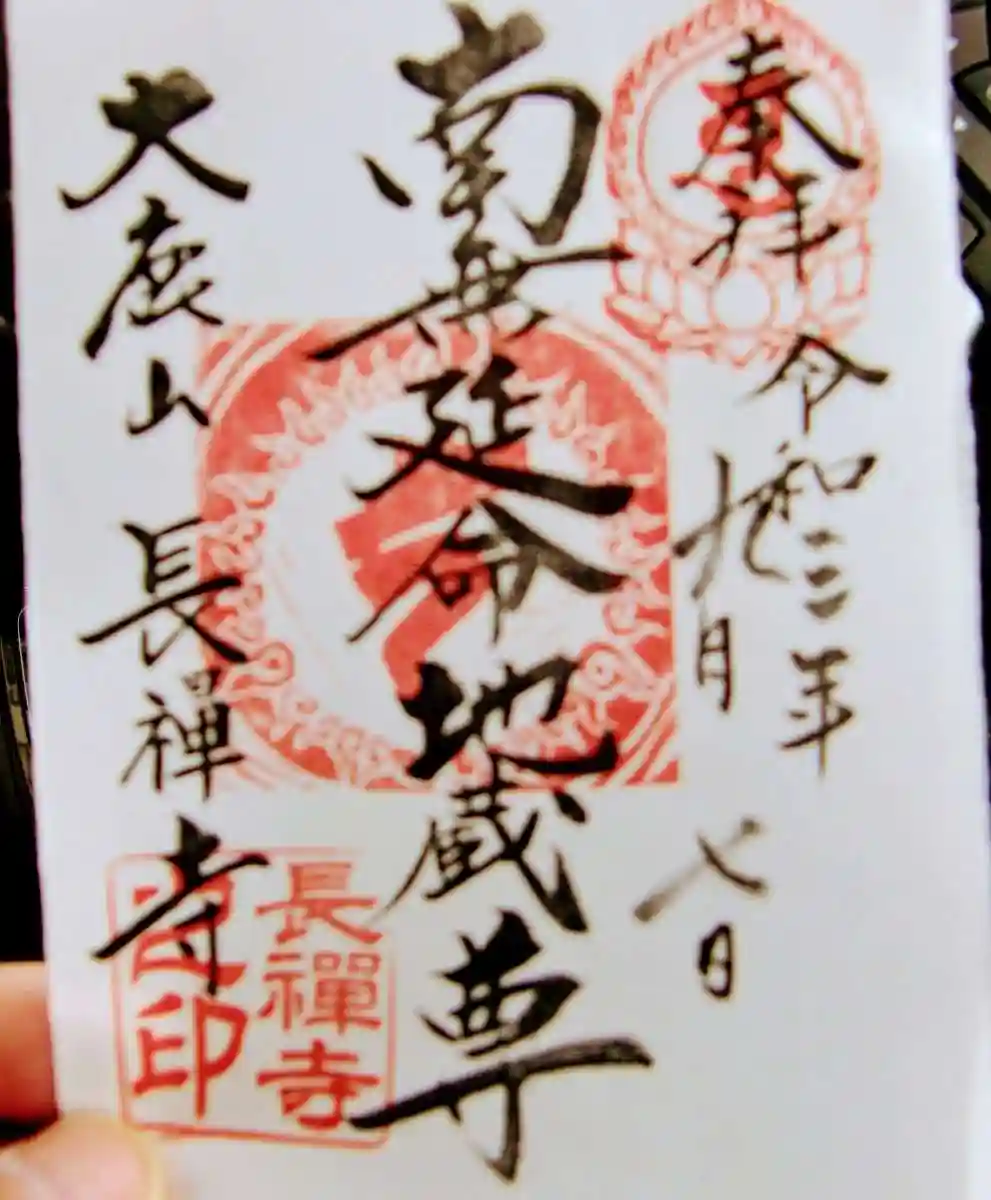 奉拝
令和三年
九月
七日
南無延命地蔵尊
大鹿山長禪寺
長禪寺
印